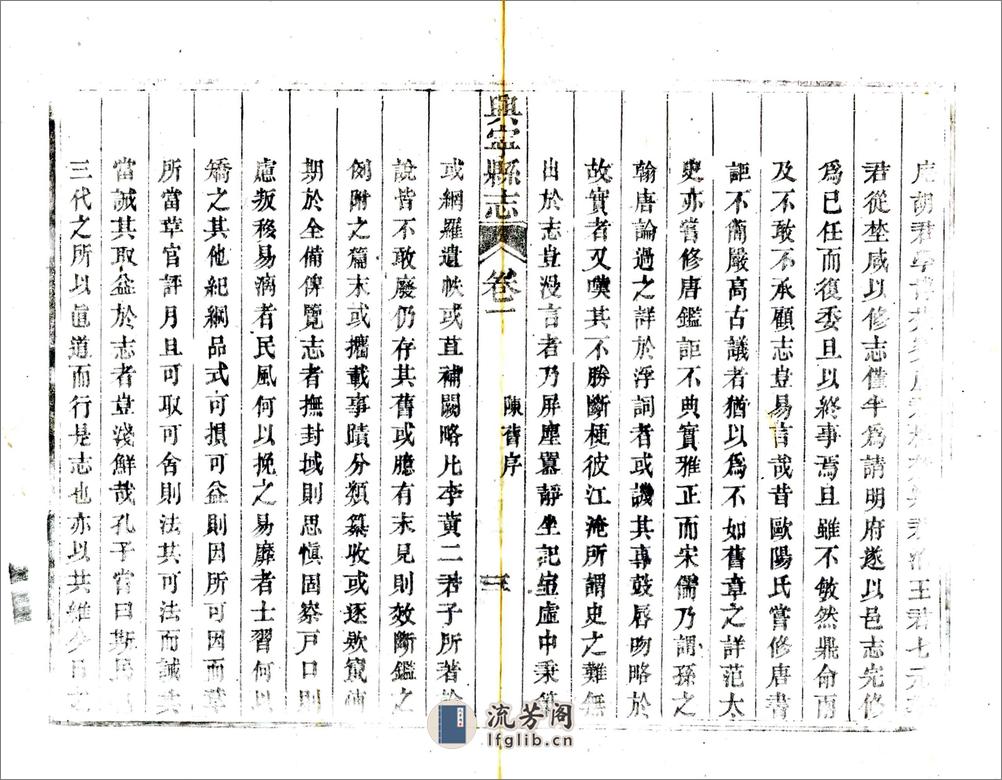 胡君
君從坐咸以修志僅半為請明府遂以邑志完修
為已任而復委旦以終事焉旦雖不敏然鼎命而
及不敢不承顧志豈易言哉昔歐陽氏嘗修唐書
詎不簡嚴高古議者猶以為不如舊章之詳范太
史亦嘗修唐鑑詎不典實雅正而宋儒乃謂孫之
翰唐論過之詳於浮詞者或譏其專鼓唇吻略於
故實者又嘆其不勝斷梗彼江淹所謂史之難無
出於志豈沒言者乃屏塵囂靜坐記室虛中秉筆
興寧縣志
卷二
陳舊序
三
或網羅遺帙或苴補闕略凡李黃二君子所著論
說皆不敢廢仍存其舊或臆有未見則效斷鑑之
例附之篇末或攟載事蹟分類纂收或逐欵竄補
期於全備俾覽志者撫封域則思慎固察戶口則
慮叛移易漓者民風何以挽之易靡者士習何以
矯之其他紀綱品式可損可益則因所可因而革
所當革官評月旦可取可舍則法其可法而誡其
當誡其取益於志者豈淺鮮哉孔子嘗曰斯民也
三代之所以直道而行是志也亦以共維今日之
流芳阁
lfglib.cn